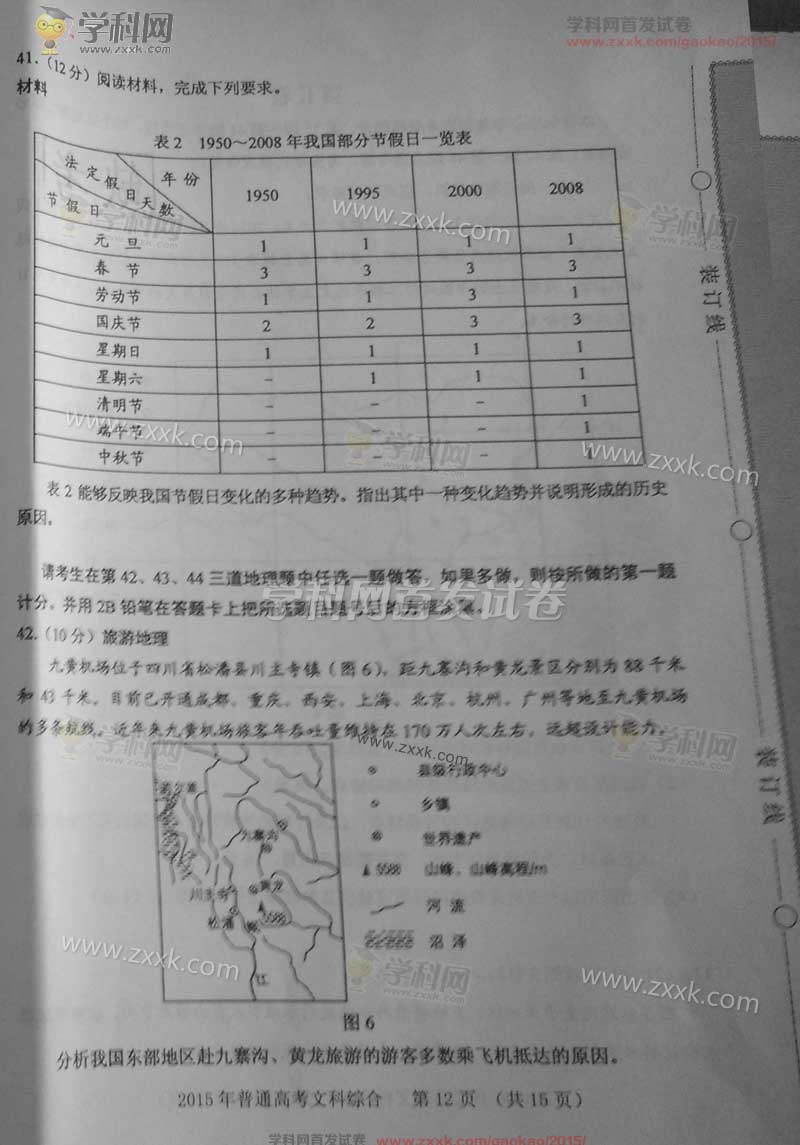 学科网
www.zxxk.com
学科网首发试卷
www.zxxk.com/gaokao/2015/
41.（12分）阅读材料，完成下列要求。
材料
表2 1950～2008年我国部分节假日一览表
法定假日天数 年份 节假日 1950 1995 2000 2008
元旦 1 1 1 1
春节 3 3 3 3
劳动节 1 1 3 1
国庆节 2 2 3 3
星期日 1 1 1 1
星期六 - 1 1 1
清明节 - - - 1
端午节 - - - 1
中秋节 - - - 1
表2能够反映我国节假日变化的多种趋势。指出其中一种变化趋势并说明形成的历史
原因。
请考生在第42、43、44三道地理题中任选一题做答，如果多做，则按所做的第一题
计分。并用2B铅笔在答题卡上把所选题目题号后的方框涂黑。
学科网首发试卷
42.（10分）旅游地理
九黄机场位于四川省松潘县川主寺镇（图6），距九寨沟和黄龙景区分别为88千米
和43千米。目前已开通成都、重庆、西安、上海、北京、杭州、广州等地至九黄机场
的多条航线。近年来九黄机场旅客年吞吐量维持在170万人次左右，远超设计能力。
若尔盖
九寨沟
川主寺
黄龙
5588
松潘
岷
江
县级行政中心
乡镇
世界遗产
5588 山峰、山峰高程/m
河流
沼泽
图6
分析我国东部地区赴九寨沟、黄龙旅游的游客多数乘飞机抵达的原因。
2015年普通高考文科综合 第12页 （共15页）
装订线
装订线
www.zxxk.com
学科网
www.zxxk.com
学科网
www.zxxk.com
学科网
www.zxxk.com
学科网
www.zxxk.com
学科网
www.zxxk.com
学科网首发试卷 www.zxxk.com/gaokao/2015/